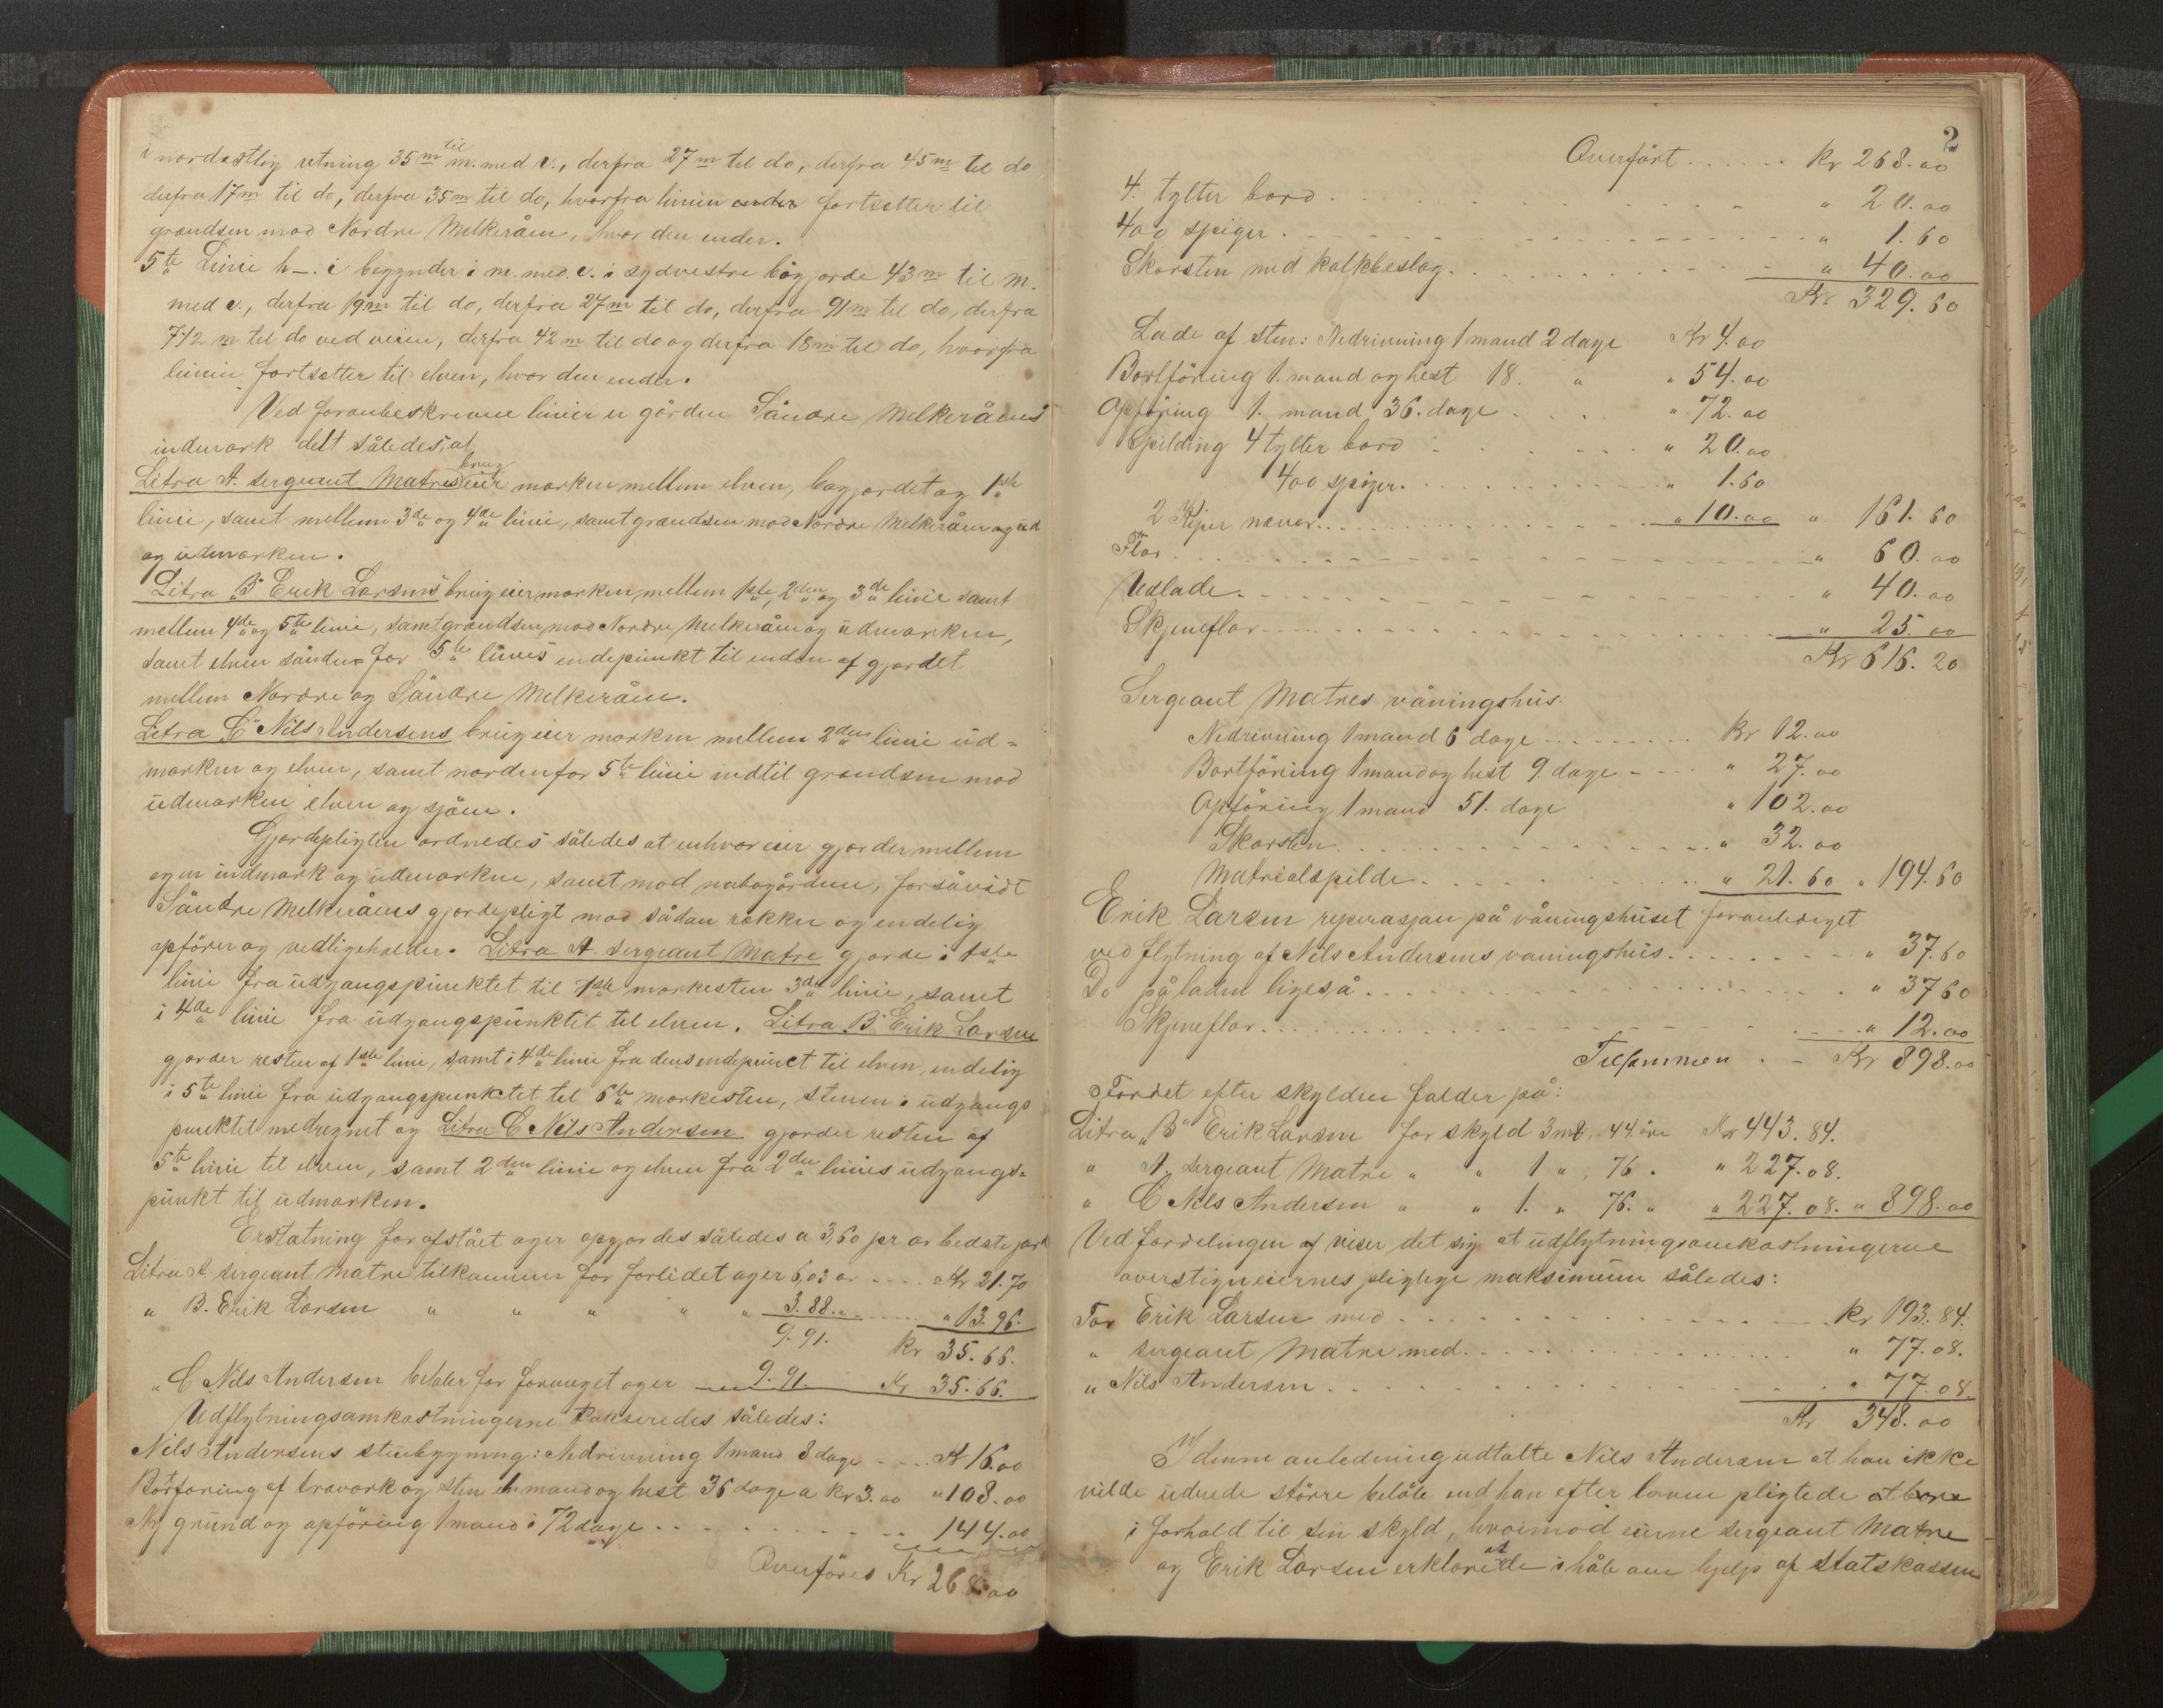 i nordøstlig retning 35 m til m. med v., derfra 27 m til do, derfra 45 m til do
derfra 17 m til do, derfra 35 m til do, hvorfra linien fortsætter til
grændsen mod Nordre Melkeråen, hvor den ender.
5te Linie h–i begynder i m. med v. i sydvestre bøgjorde 43 m til m.
med v., derfra 19 m til do, derfra 27 m til do, derfra 91 m til do, derfra
7 1/2 m til do ved veien, derfra 42 m til do og derfra 18 m til do, hvorfra
linien fortsætter til elven, hvor den ender.
Ved foranbeskrevne linier er gården Søndre Melkeråens
indmark delt således, at
Litra A. sergeant Matres brug eier marken mellem elven, bøgjordet og 1ste
linie, samt mellem 3de og 4de linie, samt grændsen mod Nordre Melkeråen og ud
og udmarken.
Litra "B" Erik Larsens brug eier marken mellem 1ste, 2den og 3de linie samt
mellem 4de og 5te linie, samt grændsen mod Nordre Melkeråen og udmarken,
samt elven sønden for 5te linies endepunkt til enden af gjordet
mellem Nordre og Søndre Melkeråen.
Litra "C" Nils Andersens brug eier marken mellem 2den linie ud=
marken og elven, samt nordenfor 5te linie indtil grændsen mod
udmarken elven og sjøen.
Gjordepligten ordnedes således at enhver eier gjorder mellem
egen indmark og udmarken, samt mod nabogården, forsåvidt
Søndre Melkeråens gjordepligt mod sådan rækker og endelig
opfører og vedligeholder. Litra A. sergeant Matre gjorde i 1ste
linie fra udgangspunktet til 1ste merkesten 3de linie, samt
i 4de linie fra udgangspunktet til elven. Litra "B" Erik Larsen
gjorder resten af 1ste linie, samt i 4de linie fra dens endepunct til elven, endelig
i 5te linie fra udgangspunktet til 6te merkesten, stenen i udgangs
punktet medregnet og Litra C Nils Andersen gjorder resten af
5te linie til elven, samt 2den linie og elven fra 2den linies udgangs=
punkt til udmarken.
Erstatning for afstået ager opgjordes således a 3,60 pr ar bedste jord
Litra A. sergeant Matre tilkommer for forlidet ager 6,03 ar .... Kr 21.70
" B. Erik Larsen " " " " " 3.88 " .... " 13.96.
9.91. Kr 35.66.
" C Nils Andersen betaler for formeget ager 9.91. Kr 35.66.
Udflytningsomkostningerne takseredes således:
Nils Andersens stuebygning: Nedrivning 1 mand 8 dage .... Kr 16.00
Bortføring af træverk og sten en mand og hest 36 dage a kr 3.00 " 108.00
Ny grund og opføring 1 mand i 72 dage .... 144.00
Overføres Kr 268.00
2
Overført ...... Kr 268.00
4. tylter bord .... " 20.00
400 spiger .... " 1.60
Skorsten med kalkbeslag .... " 40.00
Kr. 329.60
Lade af sten: Nedrivning 1 mand 2 dage Kr 4.00
Bortføring 1. mand og hest 18. " " 54.00
Opføring 1. mand 36. dage .... " 72.00
Spilding 4 tylter bord .... " 20.00
400 spiger .... " 1.60
2 Kiper næver .... " 10.00 " 161.60
Flor .... " 60.00
Vedlade .... " 40.00
Skjeneflor .... " 25.00
Kr 616.20
Sergeant Matres våningshus:
Nedrivning 1 mand 6 dage .... Kr 12.00
Bortføring 1 mand og hest 9. dage .... " 27.00
Opføring 1 mand 51. dage " 102.00
Skorsten .... " 32.00
Matrialspilde .... " 21.60 " 194.60
Erik Larsen reperasjon på våningshuset foranlediget
ved flytning af Nils Andersens våningshus .... " 37.60
Do på laden ligeså .... " 37 60
Skjeneflor .... " 12.00
Tilsammen . – Kr 898.00
Fordet efter skylden falder på:
Litra "B" Erik Larsen for skyld 3 mk. 44 øre Kr 443.84.
" A. sergeant Matre " " 1 ", 76. " 227.08.
" C Nils Andersen " " 1. " 76. " " 227.08. " 898.00
Ved fordelingen af viser det sig at udflytningsomkostningerne
overstiger eiernes pligtige maksimum således:
For Erik Larsen med .... Kr 193.84.
" sergeant Matre med .... " 77.08.
" Nils Andersen .... " 77.08.
Kr 348.00
I denne anledning udtalte Nils Andersen at han ikke
vilde udrede større beløb end han efter loven pligtede at bære
i forhold til sin skyld, hvorimod eierne sergeant Matre
og Erik Larsen erklærede at i håb om hjelp af statskassen